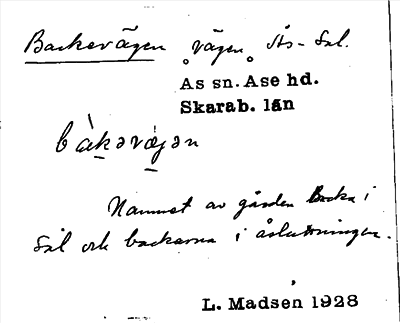 Backevägen vägen Ås - Sal.
As sn. Ase hd.
Skarab. län
bàkəvägən
Namnet av gården Backa i
Sal och backarna i åsluttningen.
L. Madsen 1928